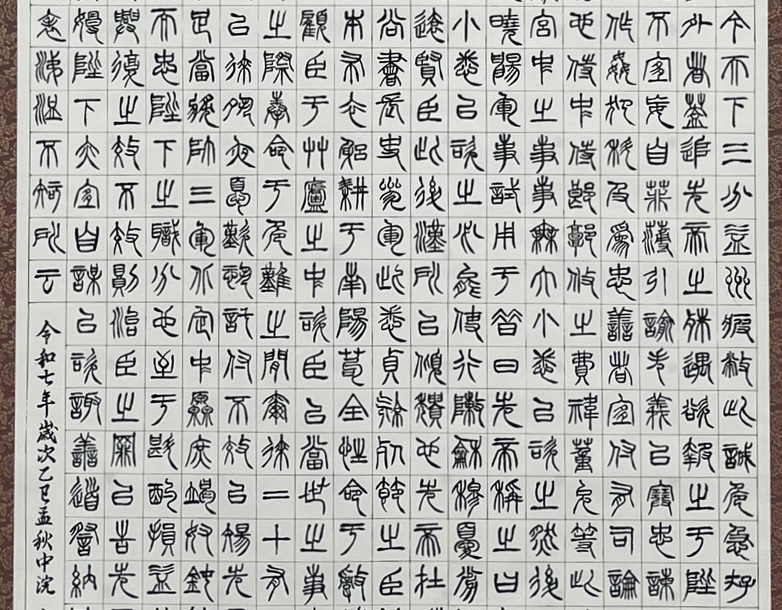 今天下三分益州疲敝此誠危急存
外者蓋追先帝之殊遇欲報之于陛
不宜妄自菲薄引諭失義以塞忠諫
作姦犯科及為忠善者宜付有司論
也侍中侍郎郭攸之費禕董允等此
宮中之事事無大小悉以諮之然後
曉暢軍事試用于昔日先帝稱之曰
小悉以諮之必能使行陣穌穆優劣
遠賢臣此後漢所以傾穨也先帝在
尚書長史參軍此悉貞亮死節之臣
本布衣躬耕于南陽苟全性命于亂
顧臣于草廬之中諮臣以當世之事
之際奉命于危難之間爾來二十有
以來夙夜憂歎恐託付不效以傷先
足當獎帥三軍北定中原庶竭駑鈍
而忠陛下之職分也至于斟酌損益
興復之效不效則治臣之罪以告先
慢陛下亦宜自謀以諮諏善道察納
表涕泣不知所云
令和七年歲次乙巳孟秋中浣